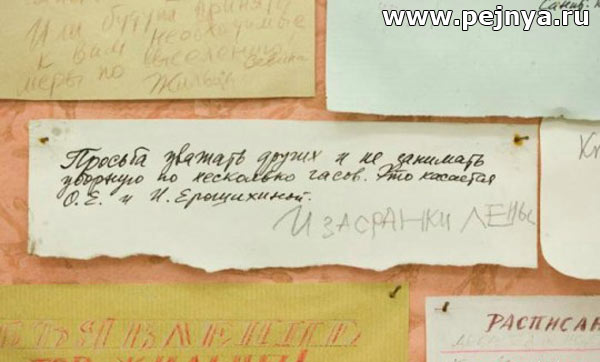 www.pejnya.ru
Или будут приняты
к вам необходимые
меры по выселению
Жильцы
Санит.
Просьба уважать других и не занимать
уборную по несколько часов. Это касается
О.Е. и И. Ерошихиной.
И ЗАСРАНКИ ЛЕНЫ
РАСПИСАН